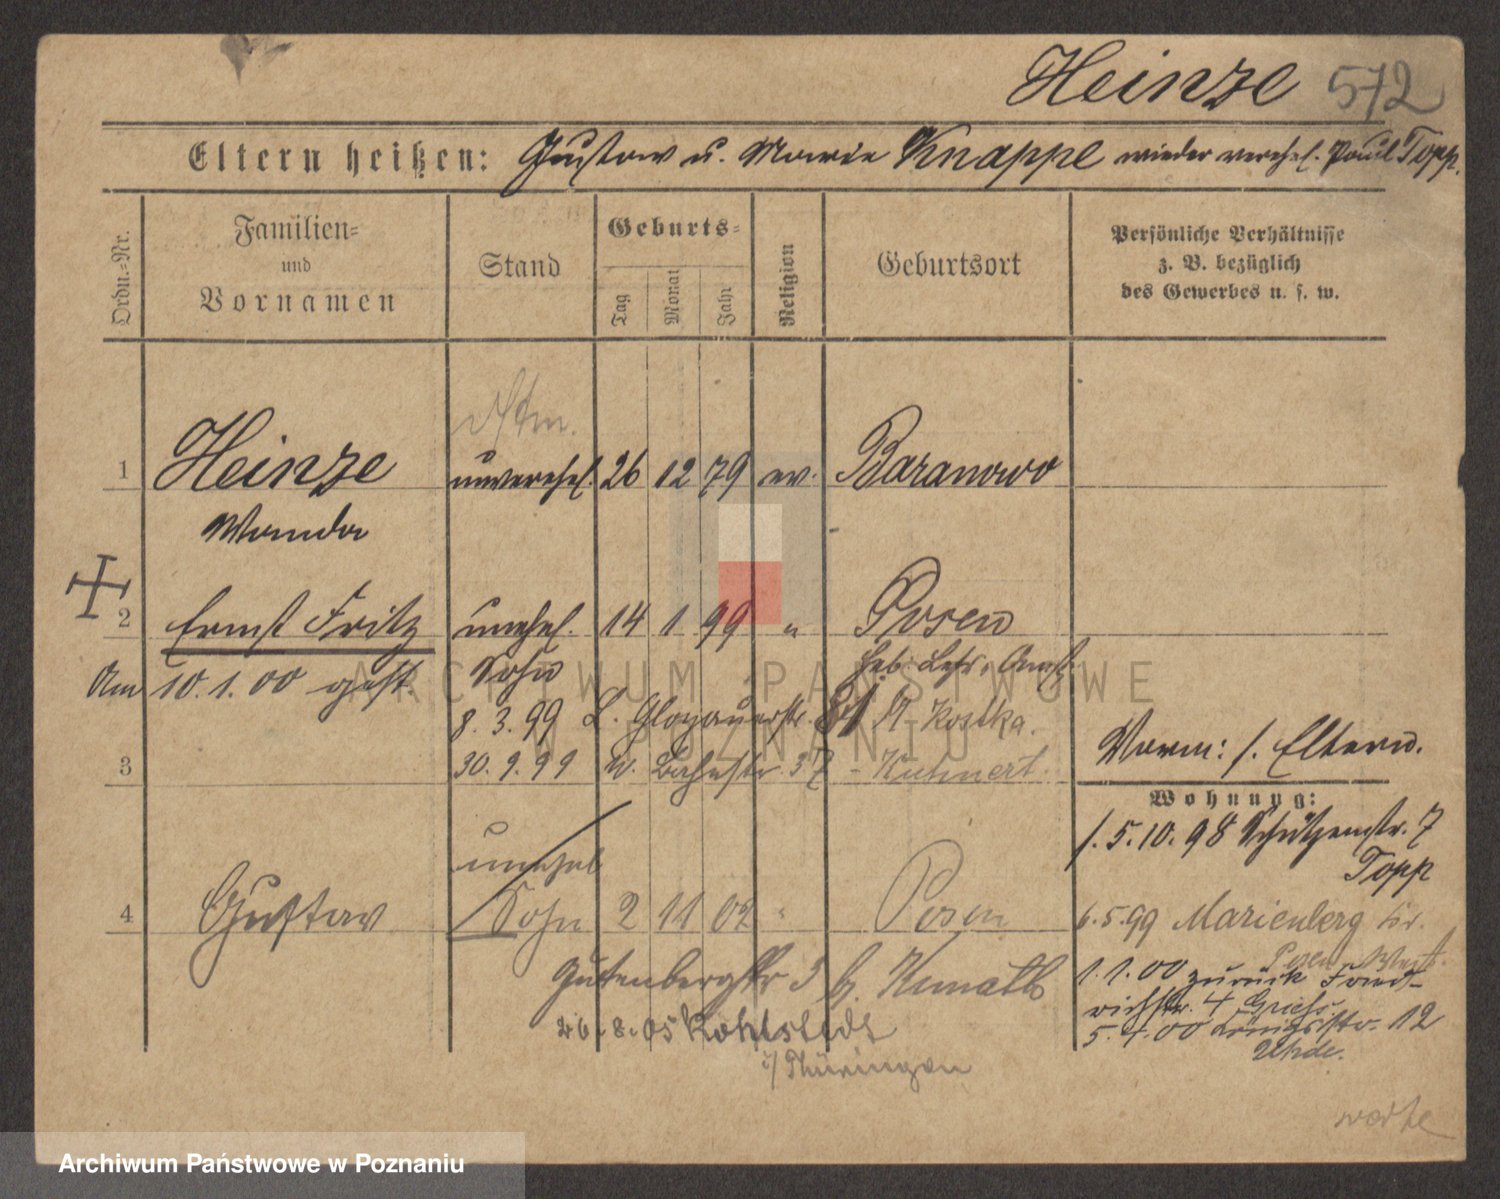 Heinze 572
Eltern heißen: Gustav u. Marie Knappe wieder verehel. Paul Topp.
Ordn.-Nr.
Familien-
und
Vornamen
Stand
Geburts-
Tag
Monat
Jahr
Religion
Geburtsort
Persönliche Verhältnisse
z. B. bezüglich
des Gewerbes u. s. w.
1 Heinze unverehel. 26 12 79 ev. Baranowo
Wanda
2 Ernst Fritz unehel. 14 1 99 " Posen
Sohn Heb. Lehr. Anst.
Am 10. 1. 00 gest.
8. 3. 99 L. Glogauerstr. 81 Kostka.
3 30. 9. 99 W. Bahnstr. 37 - Kuhnert.
Vorm: s. Eltern.
Wohnung:
s. 5. 10. 98 Schützenstr. 7
Topp
unehel
4 Gustav Sohn 2 11 02 " Posen
6. 5. 99 Marienberg Kr.
Posen West.
Gutenbergstr 3 b. Kunath
1. 1. 00 zurück Fried-
richstr. 4
5. 4. 00 Königstr. 12
Uhde.
26. 8. 05 Kohlstedt
i/Thüringen
warte
ARCHIWUM PAŃSTWOWE
W POZNANIU
Archiwum Państwowe w Poznaniu